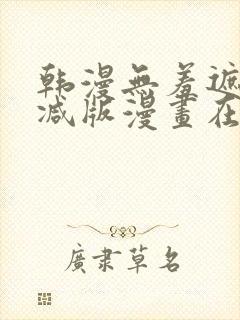 韩漫無羞遮
减版漫畫在
廣肅草名